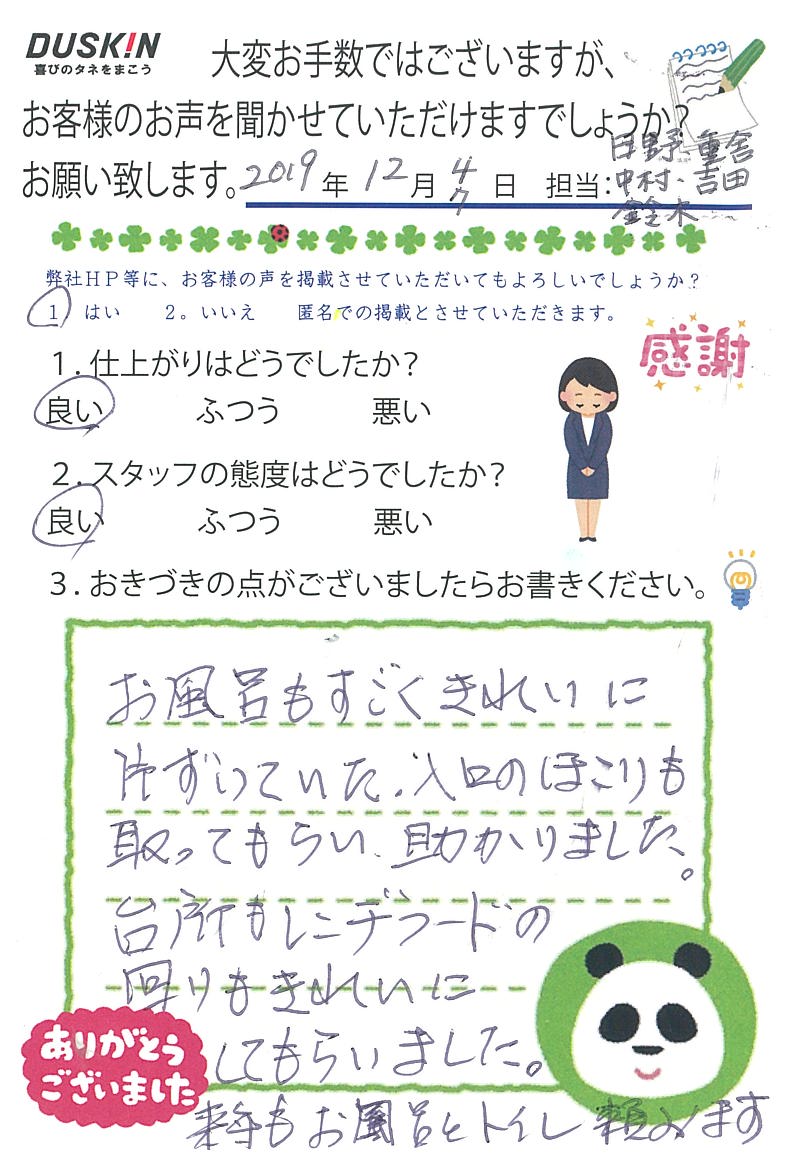 DUSKIN
喜びのタネをまこう
大変お手数ではございますが、
お客様のお声を聞かせていただけますでしょうか?
お願い致します。2019年12月4日 担当:
7
日野・重舎
中村・吉田
鈴木
弊社HP等に、お客様の声を掲載させていただいてもよろしいでしょうか?
1 はい 2。いいえ 匿名での掲載とさせていただきます。
感謝
1.仕上がりはどうでしたか?
良い ふつう 悪い
2.スタッフの態度はどうでしたか?
良い ふつう 悪い
3.おきづきの点がございましたらお書きください。
お風呂もすごくきれいに
片ずいていた。入口のほこりも
取ってもらい、助かりました。
台所もレンヂフードの
回りもきれいに
してもらいました。
ありがとう
ございました
来年もお風呂とトイレ頼みます